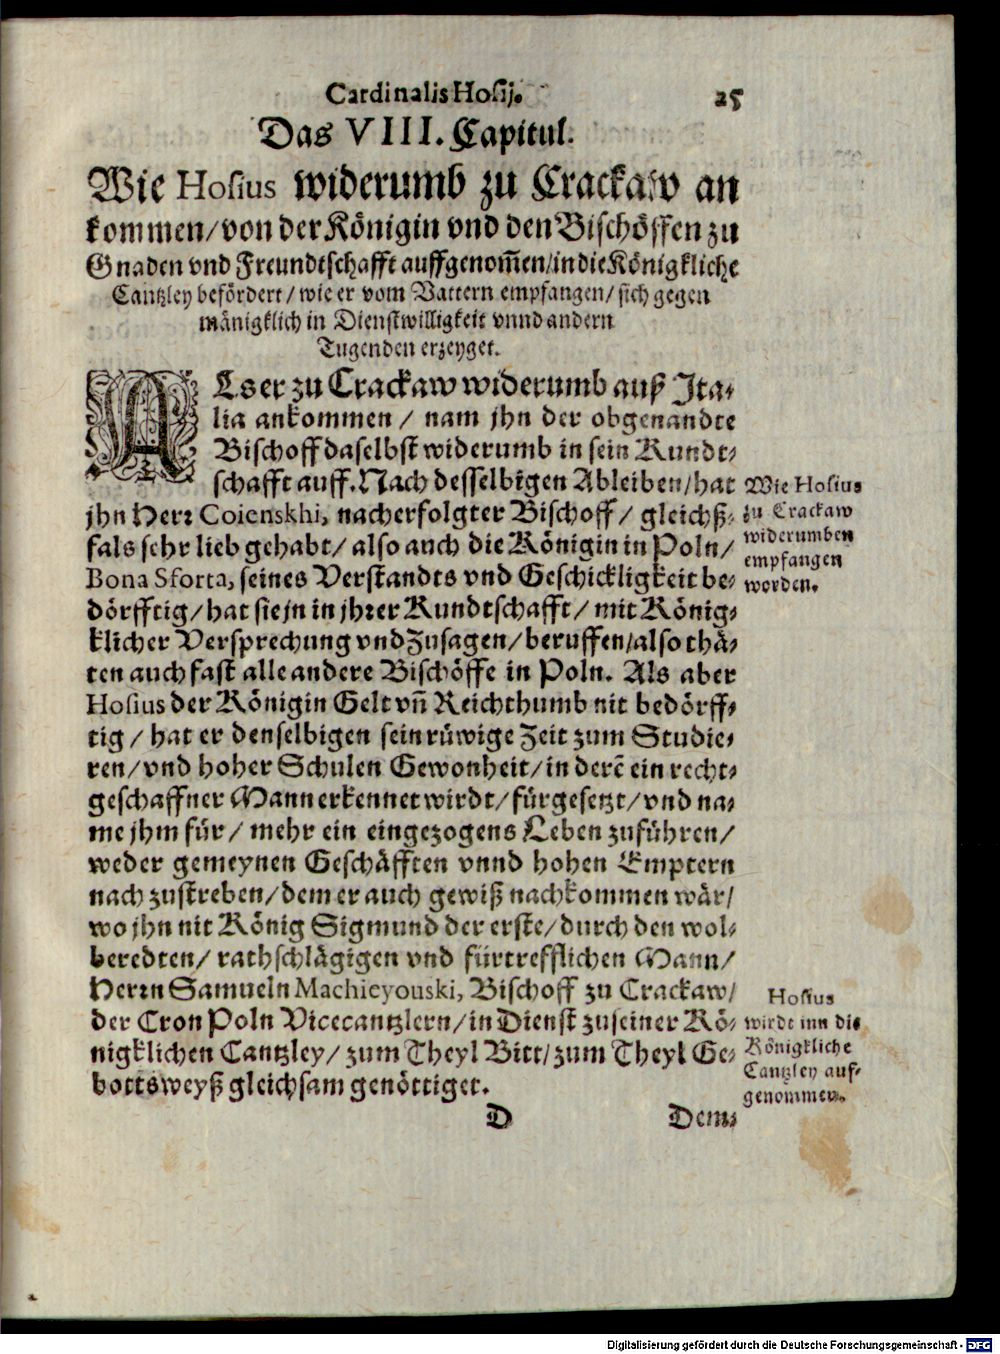 Cardinalis Hosij. 25
Das VIII. Capitul.
Wie Hosius widerumb zu Crackaw an
kommen/ von der Königin vnd den Bischöffen zu
Gnaden vnd Freundtschafft auffgenom̃en/ in die Königkliche
Cantzley befördert/ wie er vom Vattern empfangen/ sich gegen
mänigklich in Dienstwilligkeit vnnd andern
Tugenden erzeyget.
ALs er zu Crackaw widerumb auß Ita-
lia ankommen/ nam jhn der obgenandte
Bischoff daselbst widerumb in sein Kundt-
schafft auff. Nach desselbigen Ableiben/ hat
jhn Herr Coienskhi, nacherfolgter Bischoff/ gleichß-
fals sehr lieb gehabt/ also auch die Königin in Poln/
Bona Sforta, seines Verstandts vnd Geschickligkeit be-
dörfftig/ hat sie jn in jhrer Kundtschafft/ mit König-
klicher Versprechung vnd Zusagen/ beruffen/ also thä-
ten auch fast alle andere Bischöffe in Poln. Als aber
Hosius der Königin Gelt vn̄ Reichthumb nit bedörff-
tig/ hat er denselbigen sein rüwige Zeit zum Studie-
ren/ vnd hoher Schulen Gewonheit/ in derē ein recht-
geschaffner Mann erkennet wirdt/ fürgesetzt/ vnd na-
me jhm für/ mehr ein eingezogens Leben zuführen/
weder gemeynen Geschäfften vnnd hohen Emptern
nach zustreben/ dem er auch gewiß nachkommen wär/
wo jhn nit König Sigmund der erste/ durch den wol-
beredten/ rathschlägigen vnd fürtrefflichen Mann/
Herrn Samueln Machieyouski, Bischoff zu Crackaw/
der Cron Poln Vicecantzlern/ in Dienst zu seiner Kö-
nigklichen Cantzley/ zum Theyl Bitt/ zum Theyl Ge-
bottsweyß gleichsam genöttiget.
D Dem-
Wie Hosius
zu Crackaw
widerumben
empfangen
worden.
Hosius
wirdt inn die
Königkliche
Cantzley auf-
genommen.
Digitalisierung gefördert durch die Deutsche Forschungsgemeinschaft - DFG